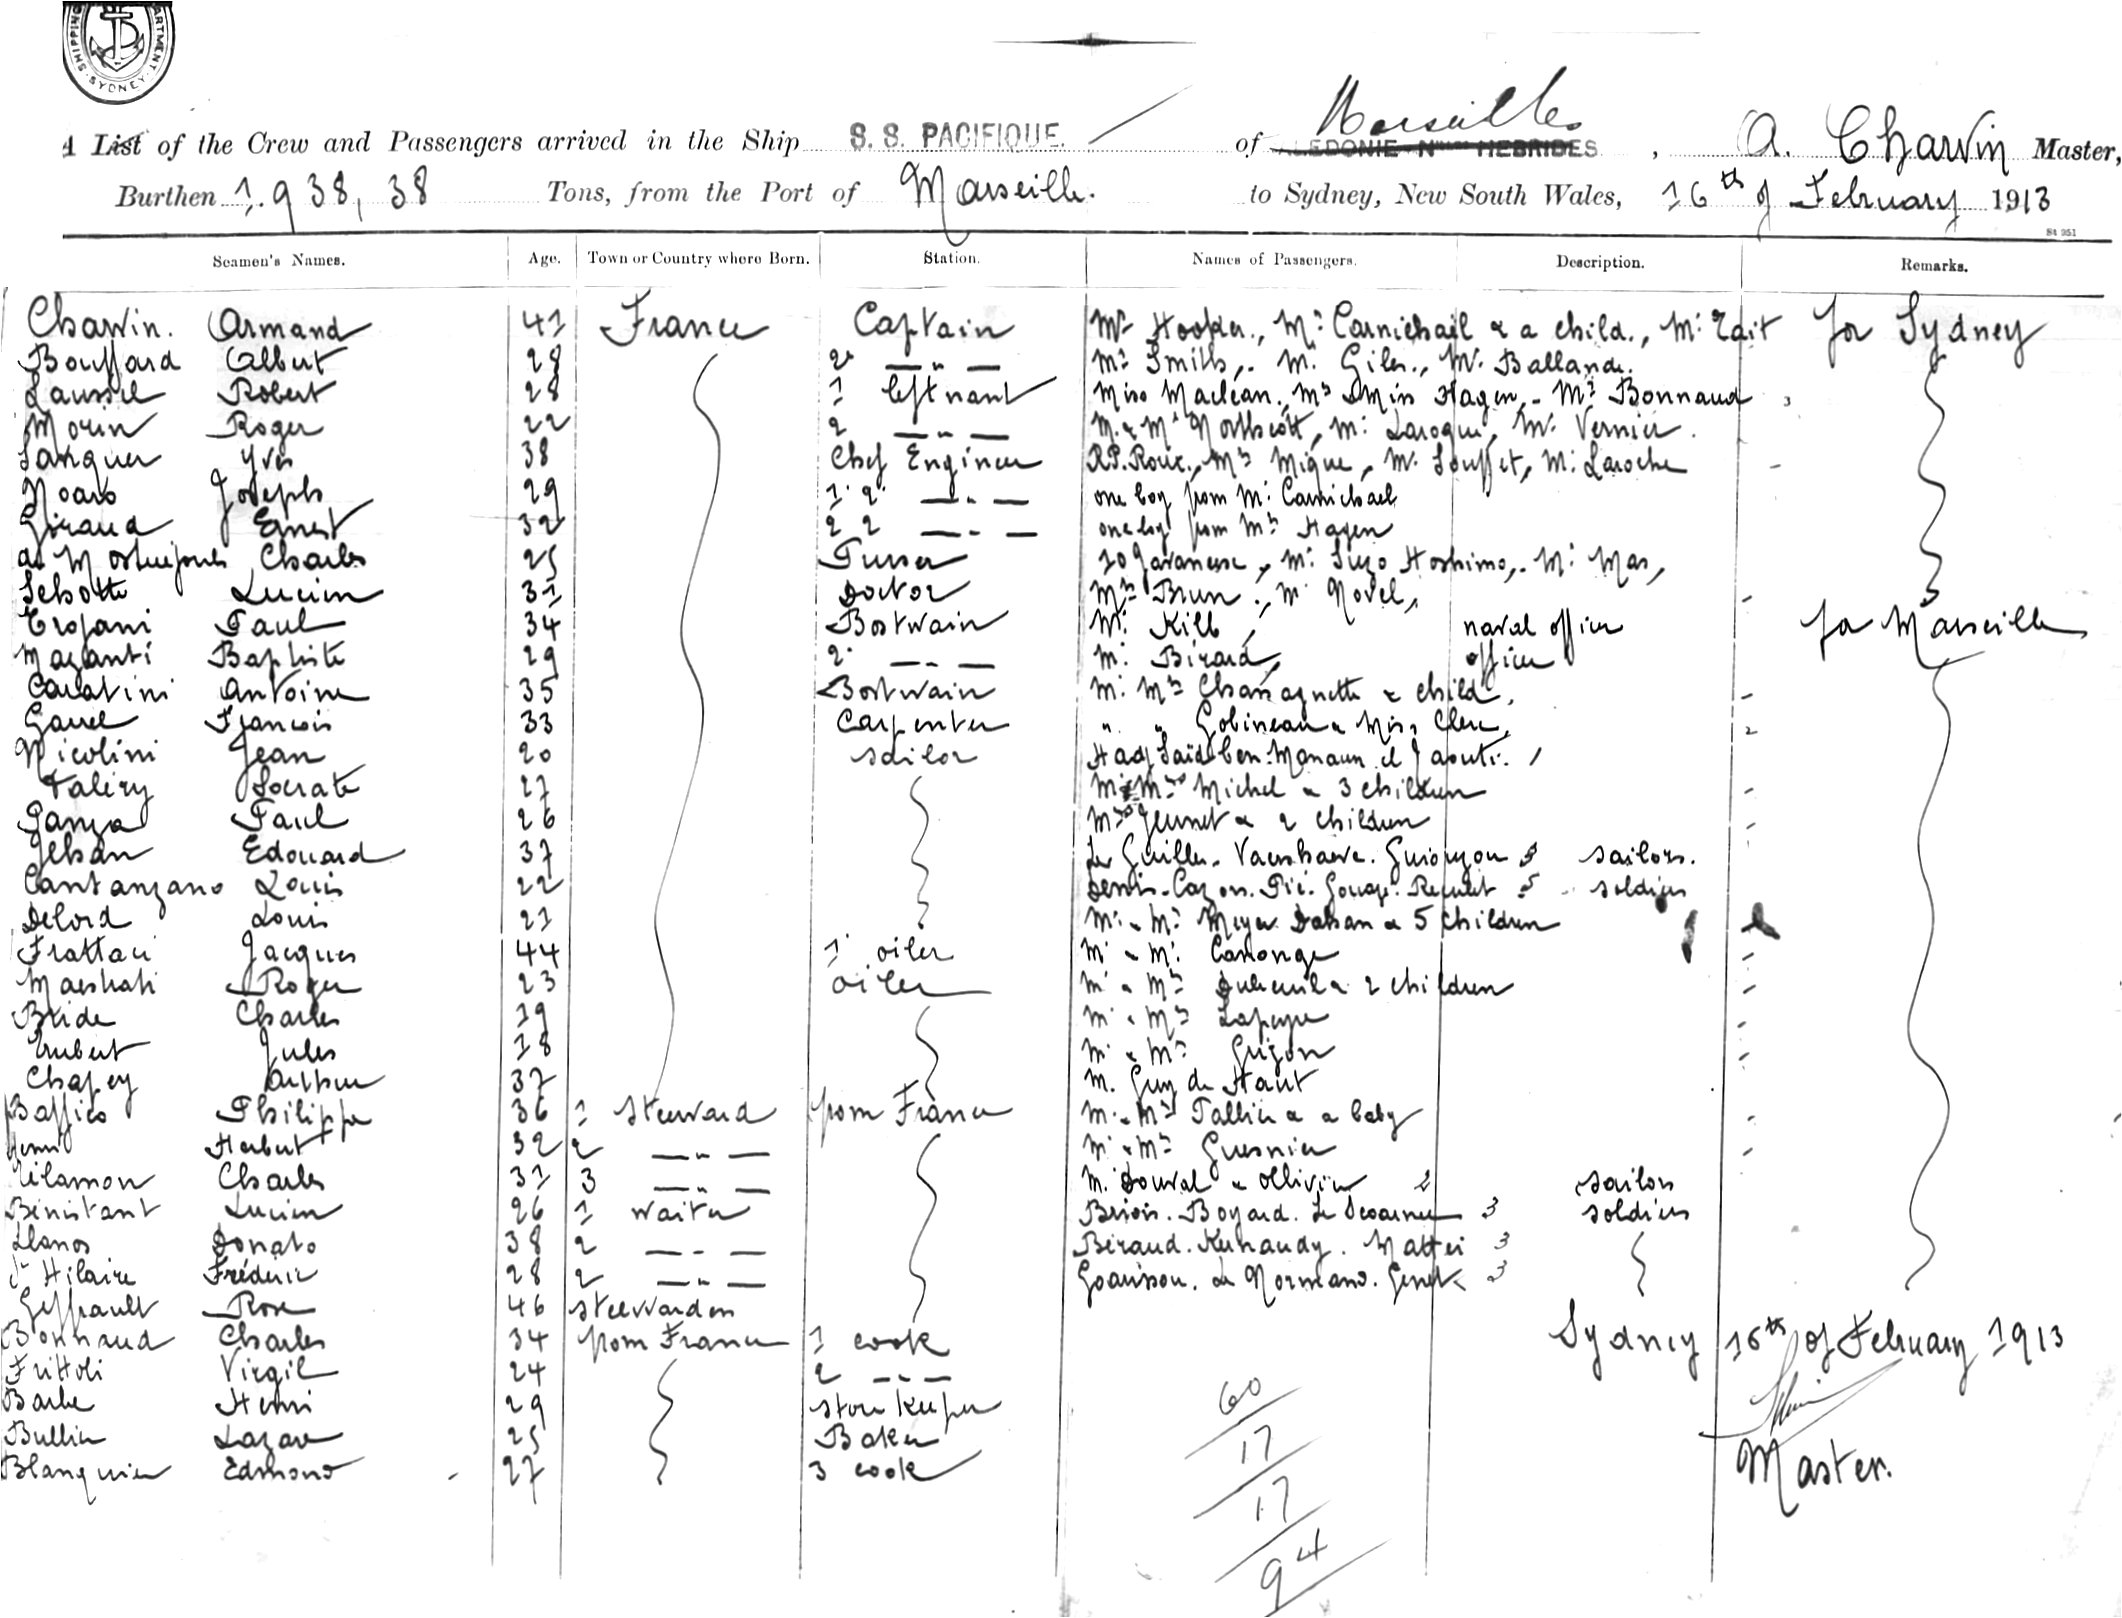 SHIPPING DEPARTMENT SYDNEY
A List of the Crew and Passengers arrived in the Ship S. S. PACIFIQUE. of Marseilles HEBRIDES, A. Chawin Master,
Burthen 1.938,38 Tons, from the Port of Marseille. to Sydney, New South Wales, 16th of February 1913
St 351
Seamen's Names. Age. Town or Country where Born. Station. Names of Passengers. Description. Remarks.
Chawin. Armand 41 France Captain Mrs Hooker., Mr Carmichaël & a child., Mr Tait for Sydney
Bouffard Albert 28 2d — " — Mr Smith,. Mr. Giles., Mr. Ballande.
Laussel Robert 28 1 leftnant Miss Maclean., Mrs & Miss Hagen,. Mr Bonnaud 3
Morin Roger 22 2 — " — M. & Mrs Northcott, Mr. Laroque, Mr. Vernier.
Sanquer Yves 38 Chef Engineer RP. Roux., Mrs Mique, Mr. Souffet, Mr. Laroche
Noaro Joseph 29 1. 2. — " — one boy from Mr. Carmichaël
Giraud Ernest 32 2 2 — " — one boy from Mrs Hagen
de Charles 25 Purser 10 Javanese, Mr. Suzo Hoshimo,. Mr. Mas,
Schotte Lucien 31 Doctor Mrs Brun., Mr Novel,
Trojani Paul 34 Bostwain Mr. Kill, naval officer for Marseille
Mazanti Baptiste 29 2. — " — Mr. Birard, officer
Casabini Antoine 35 Bostwain Mr. Mrs Chassagnette & child,
Gavel François 33 Carpenter " " Gobineau & Miss Clerc, 2
Nicolini Jean 20 sailor Hadj Saïd ben
Valéry Socrate 27 Mr & Mrs Michel & 3 children
Panza Paul 26 Mrs Jeunet & 2 children
Jehan Edouard 37 Le Guillu. Guiouyou 3 sailors.
Cantanzano Louis 22 Denis. Cazon. Pié. Gouage. 5 soldiers
Delord Louis 21 Mr. & Mrs Meyer Dahan & 5 children
Frattaci Jacques 44 1. oiler Mr & Mrs. Canonge
Maestrati Roger 23 oiler Mr & Mrs Dubreuil & 2 children
Bride Charles 19 Mr & Mrs Lapeyre
Imbert Jules 18 Mr & Mrs Grizon
Chapey Arthur 37 M. Guy de Haut
Baffico Philippe 36 1 steeward from France Mr & Mrs Tallier & a baby
Henri Herbert 32 2 — " — Mr & Mrs Guesnier
Charles 31 3 — " — M. Douval & Ollivier 2 sailors
Bénistant Lucien 26 1 waiter Briois. Boyard. 3 soldiers
Llanos Donato 38 2 — " — Béraud. Kerhaudy. Mattei 3
St Hilaire Fréderic 28 2 — " — Goarisson. Le Normand. Genet 3
Geffrault Rose 46 steewardess
Bonnaud Charles 34 from France 1 cook Sydney 16th of February 1913
Frittoli Virgil 24 2 — " —
Barbe Henri 29 store keeper
Bullier Lazare 25 Baker
Blanquier Edmond 27 3 cook Master.
60
17
17
94